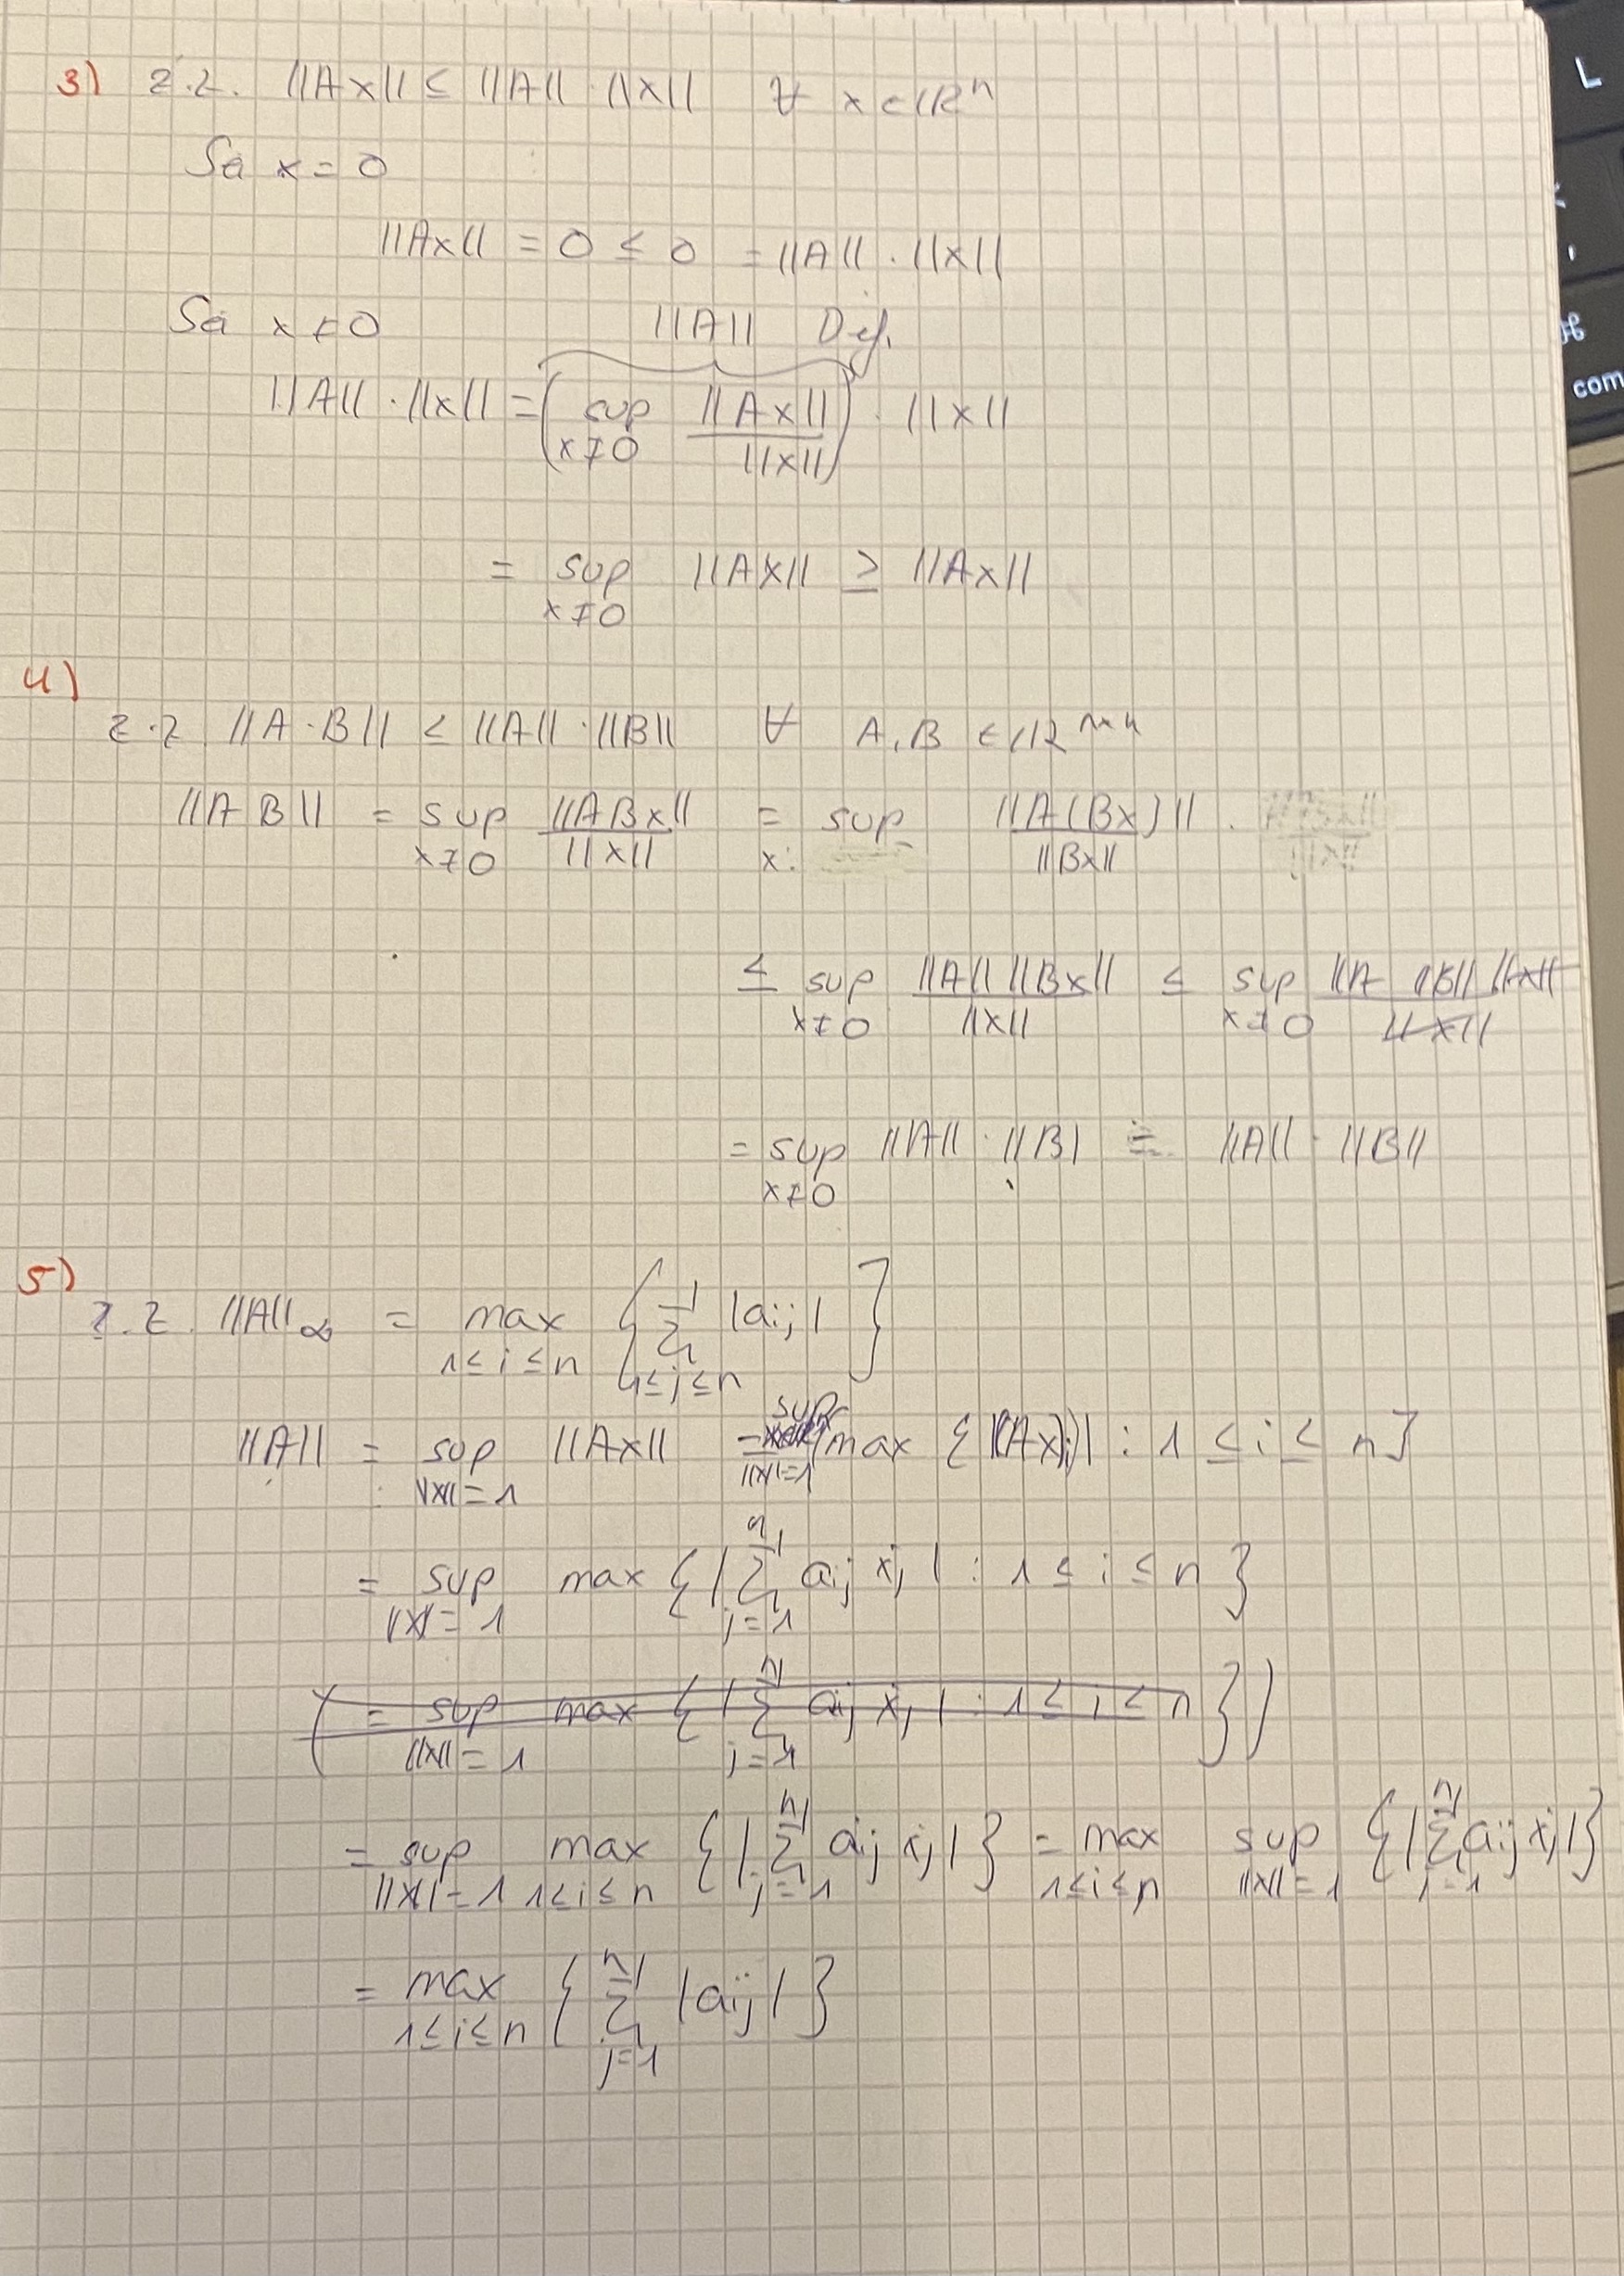 3) z.z. ||Ax|| ≤ ||A|| · ||x|| ∀ x ∈ ℝ^n
Sei x = 0
||Ax|| = 0 ≤ 0 = ||A|| · ||x||
Sei x ≠ 0 ||A|| Def.
||A|| · ||x|| = ( sup_{x≠0} ||Ax|| / ||x|| ) · ||x||
= sup_{x≠0} ||Ax|| ≥ ||Ax||
4)
z.z. ||A · B|| ≤ ||A|| · ||B|| ∀ A, B ∈ ℝ^{n×n}
||AB|| = sup_{x≠0} ||ABx|| / ||x|| = sup_{x:} ||A(Bx)|| / ||Bx|| ·
≤ sup_{x≠0} ||A|| ||Bx|| / ||x|| ≤ sup_{x≠0} ||A ||B|| ||x|| / ||x||
= sup_{x≠0} ||A|| · ||B| = ||A|| · ||B||
5)
z.z. ||A||_∞ = max_{1≤i≤n} { Σ_{1≤j≤n} |a_{ij}| }
||A|| = sup_{||x||=1} ||Ax|| = sup_{||x||=1} max { |(Ax)_i| : 1 ≤ i ≤ n }
= sup_{||x||=1} max { | Σ_{j=1}^{n} a_{ij} x_j | : 1 ≤ i ≤ n }
( = sup_{||x||=1} max { | Σ_{j=1}^{n} a_{ij} x_j | : 1 ≤ i ≤ n } )
= sup_{||x||=1} max_{1≤i≤n} { | Σ_{j=1}^{n} a_{ij} x_j | } = max_{1≤i≤n} sup_{||x||=1} { | Σ_{j=1}^{n} a_{ij} x_j | }
= max_{1≤i≤n} { Σ_{j=1}^{n} |a_{ij}| }
L
⌘
com